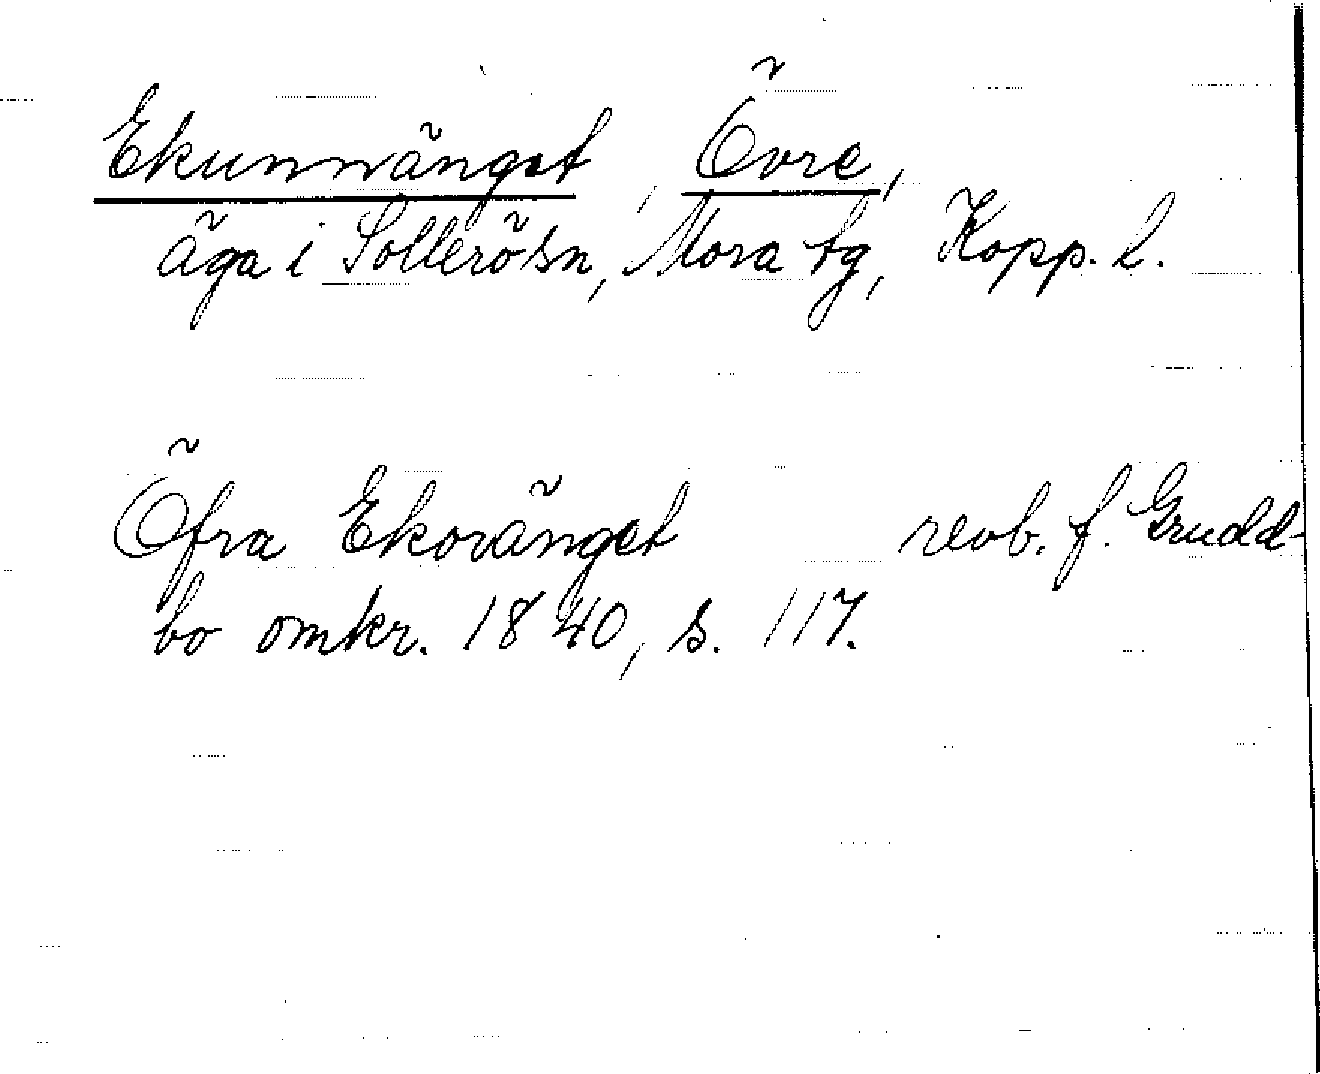 Ekunnvänget, Övre,
äga i Sollerö sn, Mora tg, Kopp. l.
Öfra Ekovänget revb. f. Grudd-
bo omkr. 1840, s. 117.